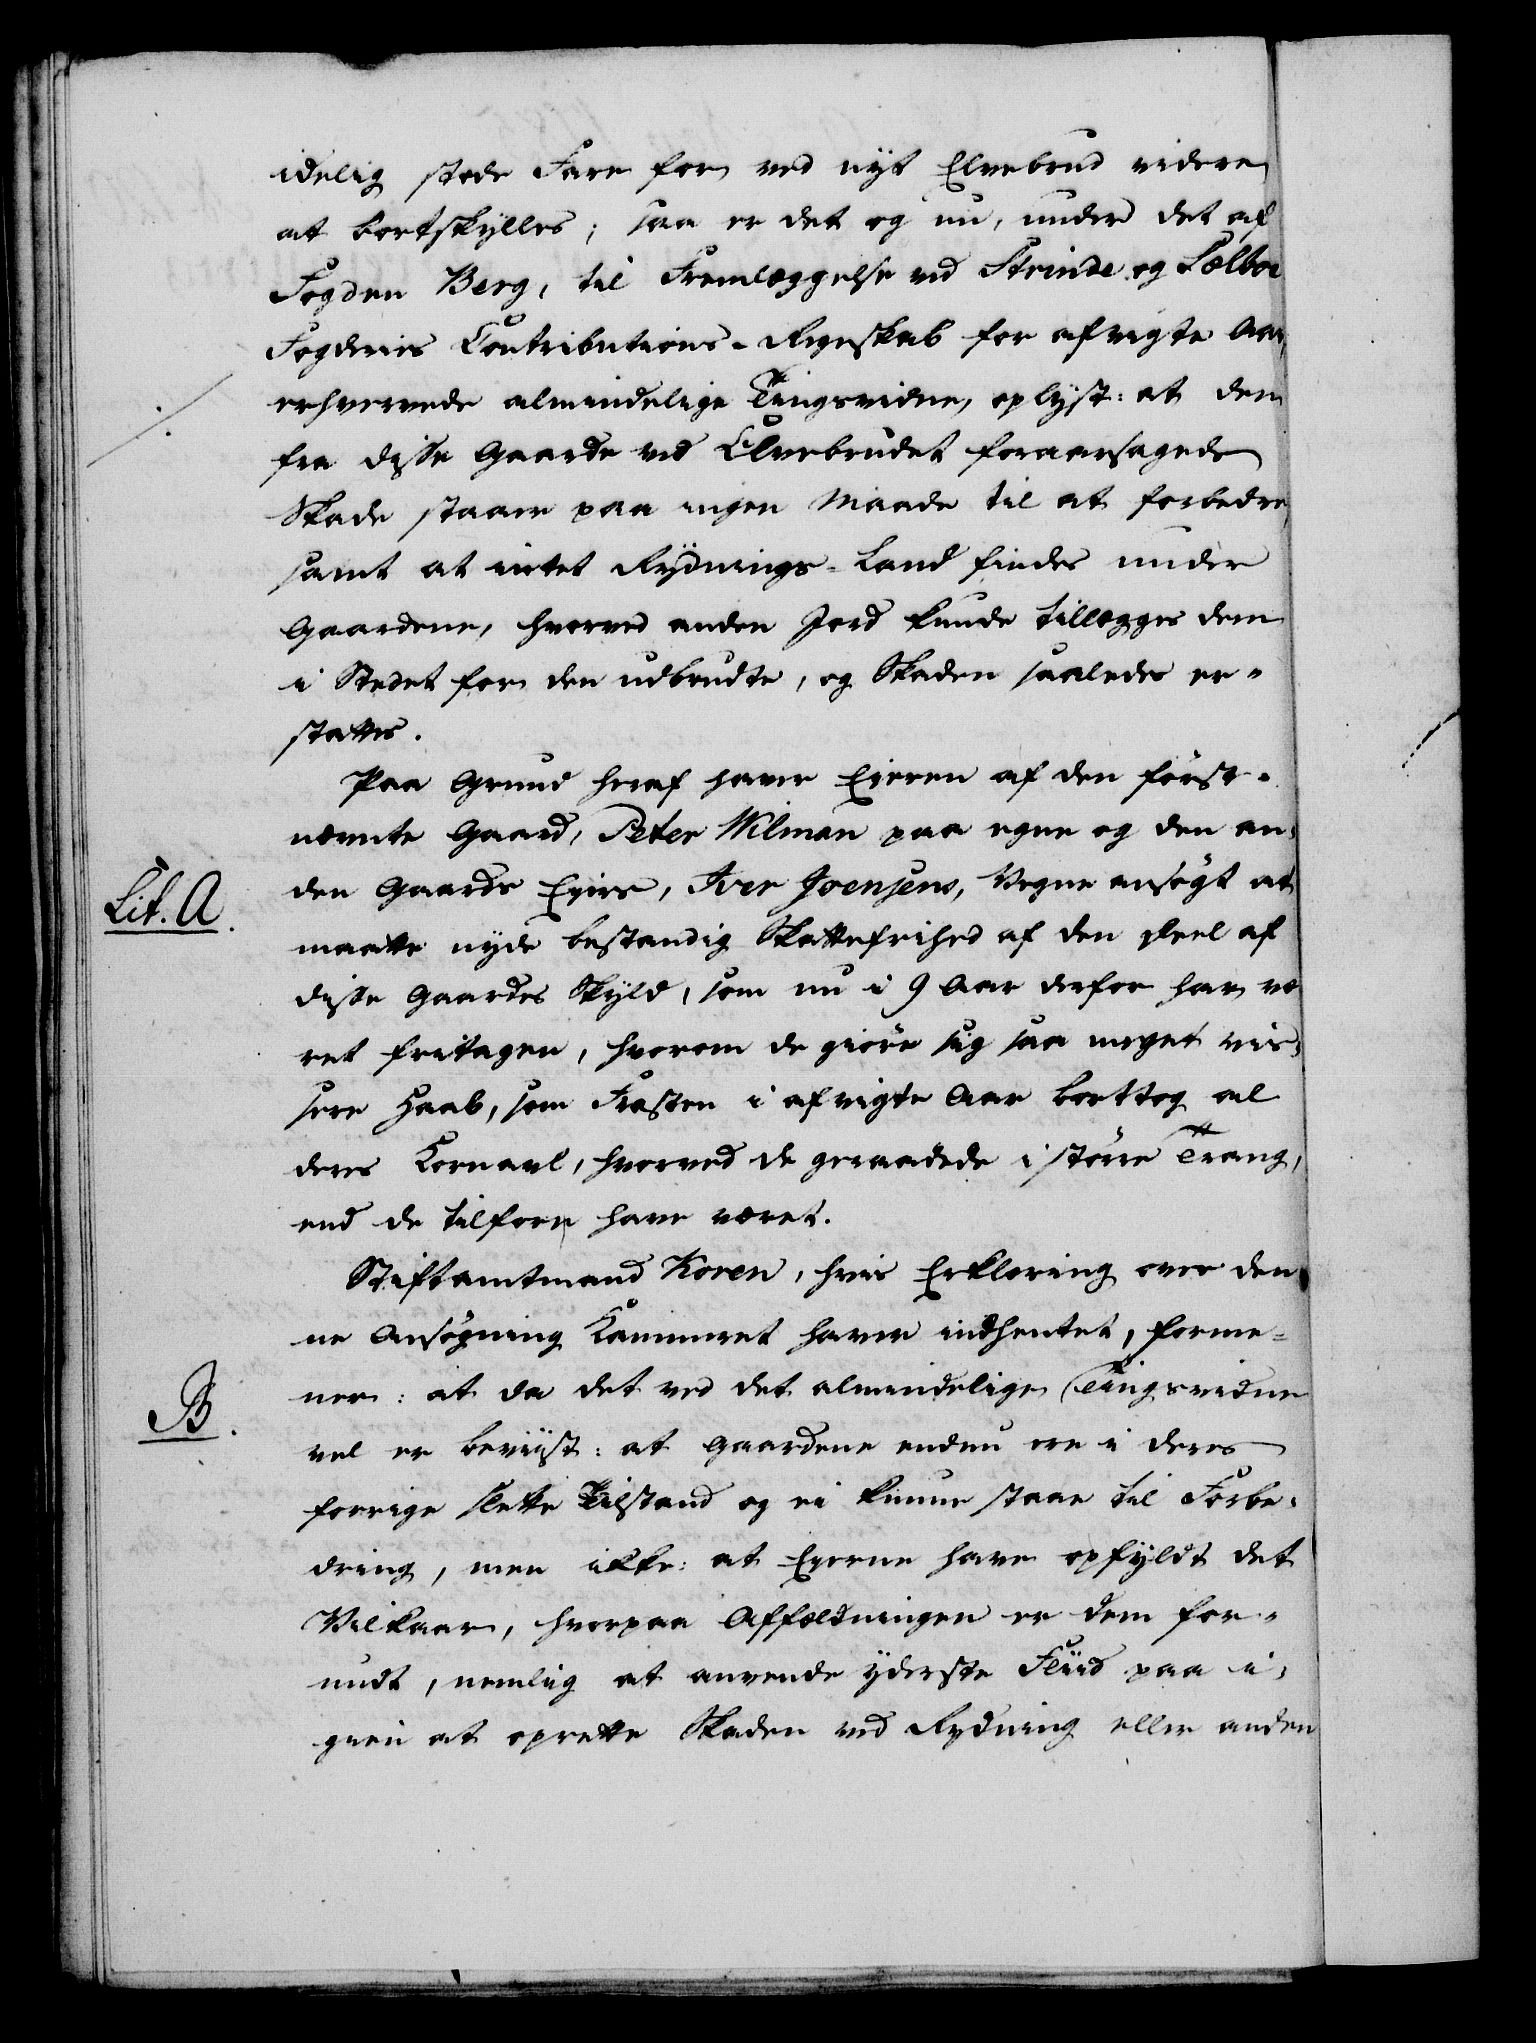 idelig stode Fare for ved nyt Elvebrud videre
at bortskylles; saa er det og nu, under det af
Fogden Berg, til Fremlæggelse ved Strinde og Sælboe
Fogderies Contributions-Regnskab for afvigte Aar,
erhvervede almindelige Tingsvidne, oplyst: at den
fra disse Gaarde ved Elvebrudet foraarsagede
Skade staaer paa ingen Maade til at forbedre,
samt at intet Rydnings-Land findes under
Gaardene, hvorved anden Jord kunde tillægges dem
i Stedet for den udbrudte, og Skaden saaledes er-
stattes.
Paa Grund heraf haver Eieren af den först-
nævnte Gaard, Peter Wilman paa egne og den an-
den Gaards Eyers, Iver Joensens, Vegne ansögt at
Lit. A.
maatte nyde bestandig Skattefrihed af den Deel af
disse Gaardes Skyld, som nu i 9 Aar derfor har væ
ret fritagen, hvorom de giöre sig saa meget vis-
sere Haab, som Frosten i afvigte Aar borttog al
deres Kornavl, hvorved de geraadede i större Trang,
end de tilforn have været.
Stiftamtmand Koren, hvis Erklæring over den
ne Ansögning Kammeret haver indhentet, forme-
ner: at da det ved det almindelige Tingsvidne
B.
vel er beviist: at Gaardene endnu ere i deres
forrige slette Tilstand og ei kunne staae til Forbe-
dring, men ikke: at Eyerne have opfyldt det
Vilkaar, hvorpaa Affældningen er dem for-
undt, nemlig at anvende yderste Fliid paa i-
gien at oprette Skaden ved Rydning eller anden